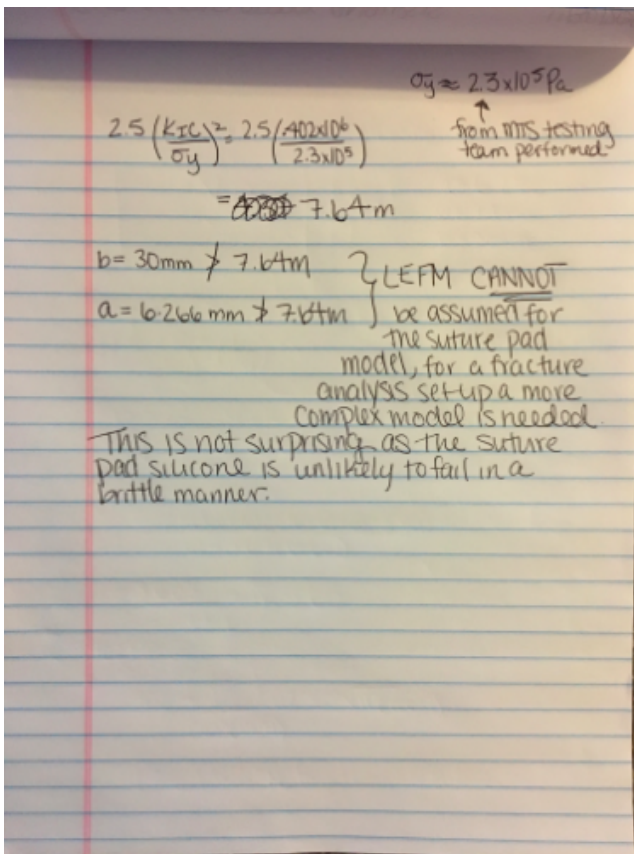 σy ≈ 2.3x10⁵ Pa
↑
from MTS testing
team performed
2.5 (KIC/σy)² = 2.5(.402x10⁶/2.3x10⁵)
= 7.64m
b = 30mm ≯ 7.64m
a = 6.266mm ≯ 7.64m } LEFM CANNOT
be assumed for
the suture pad
model, for a fracture
analysis set-up a more
complex model is needed.
This is not surprising as the suture
pad silicone is unlikely to fail in a
brittle manner.